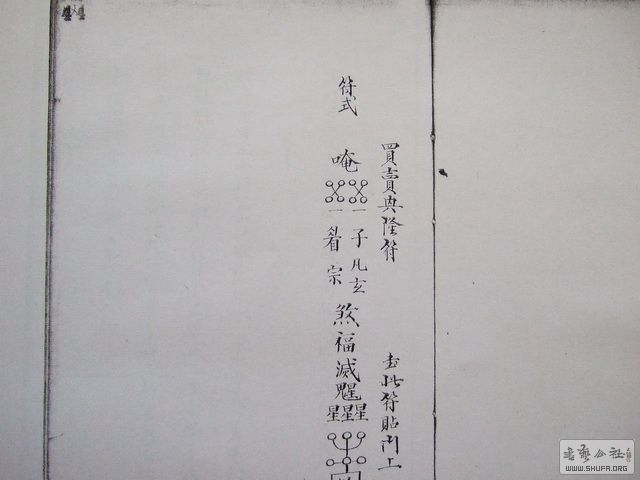 買賣興隆符
書此符貼門上
符式
唵
一 一
子
凡
玄
看
宗
煞
福
滅
魁
星星星
WWW.SHUFA.ORG